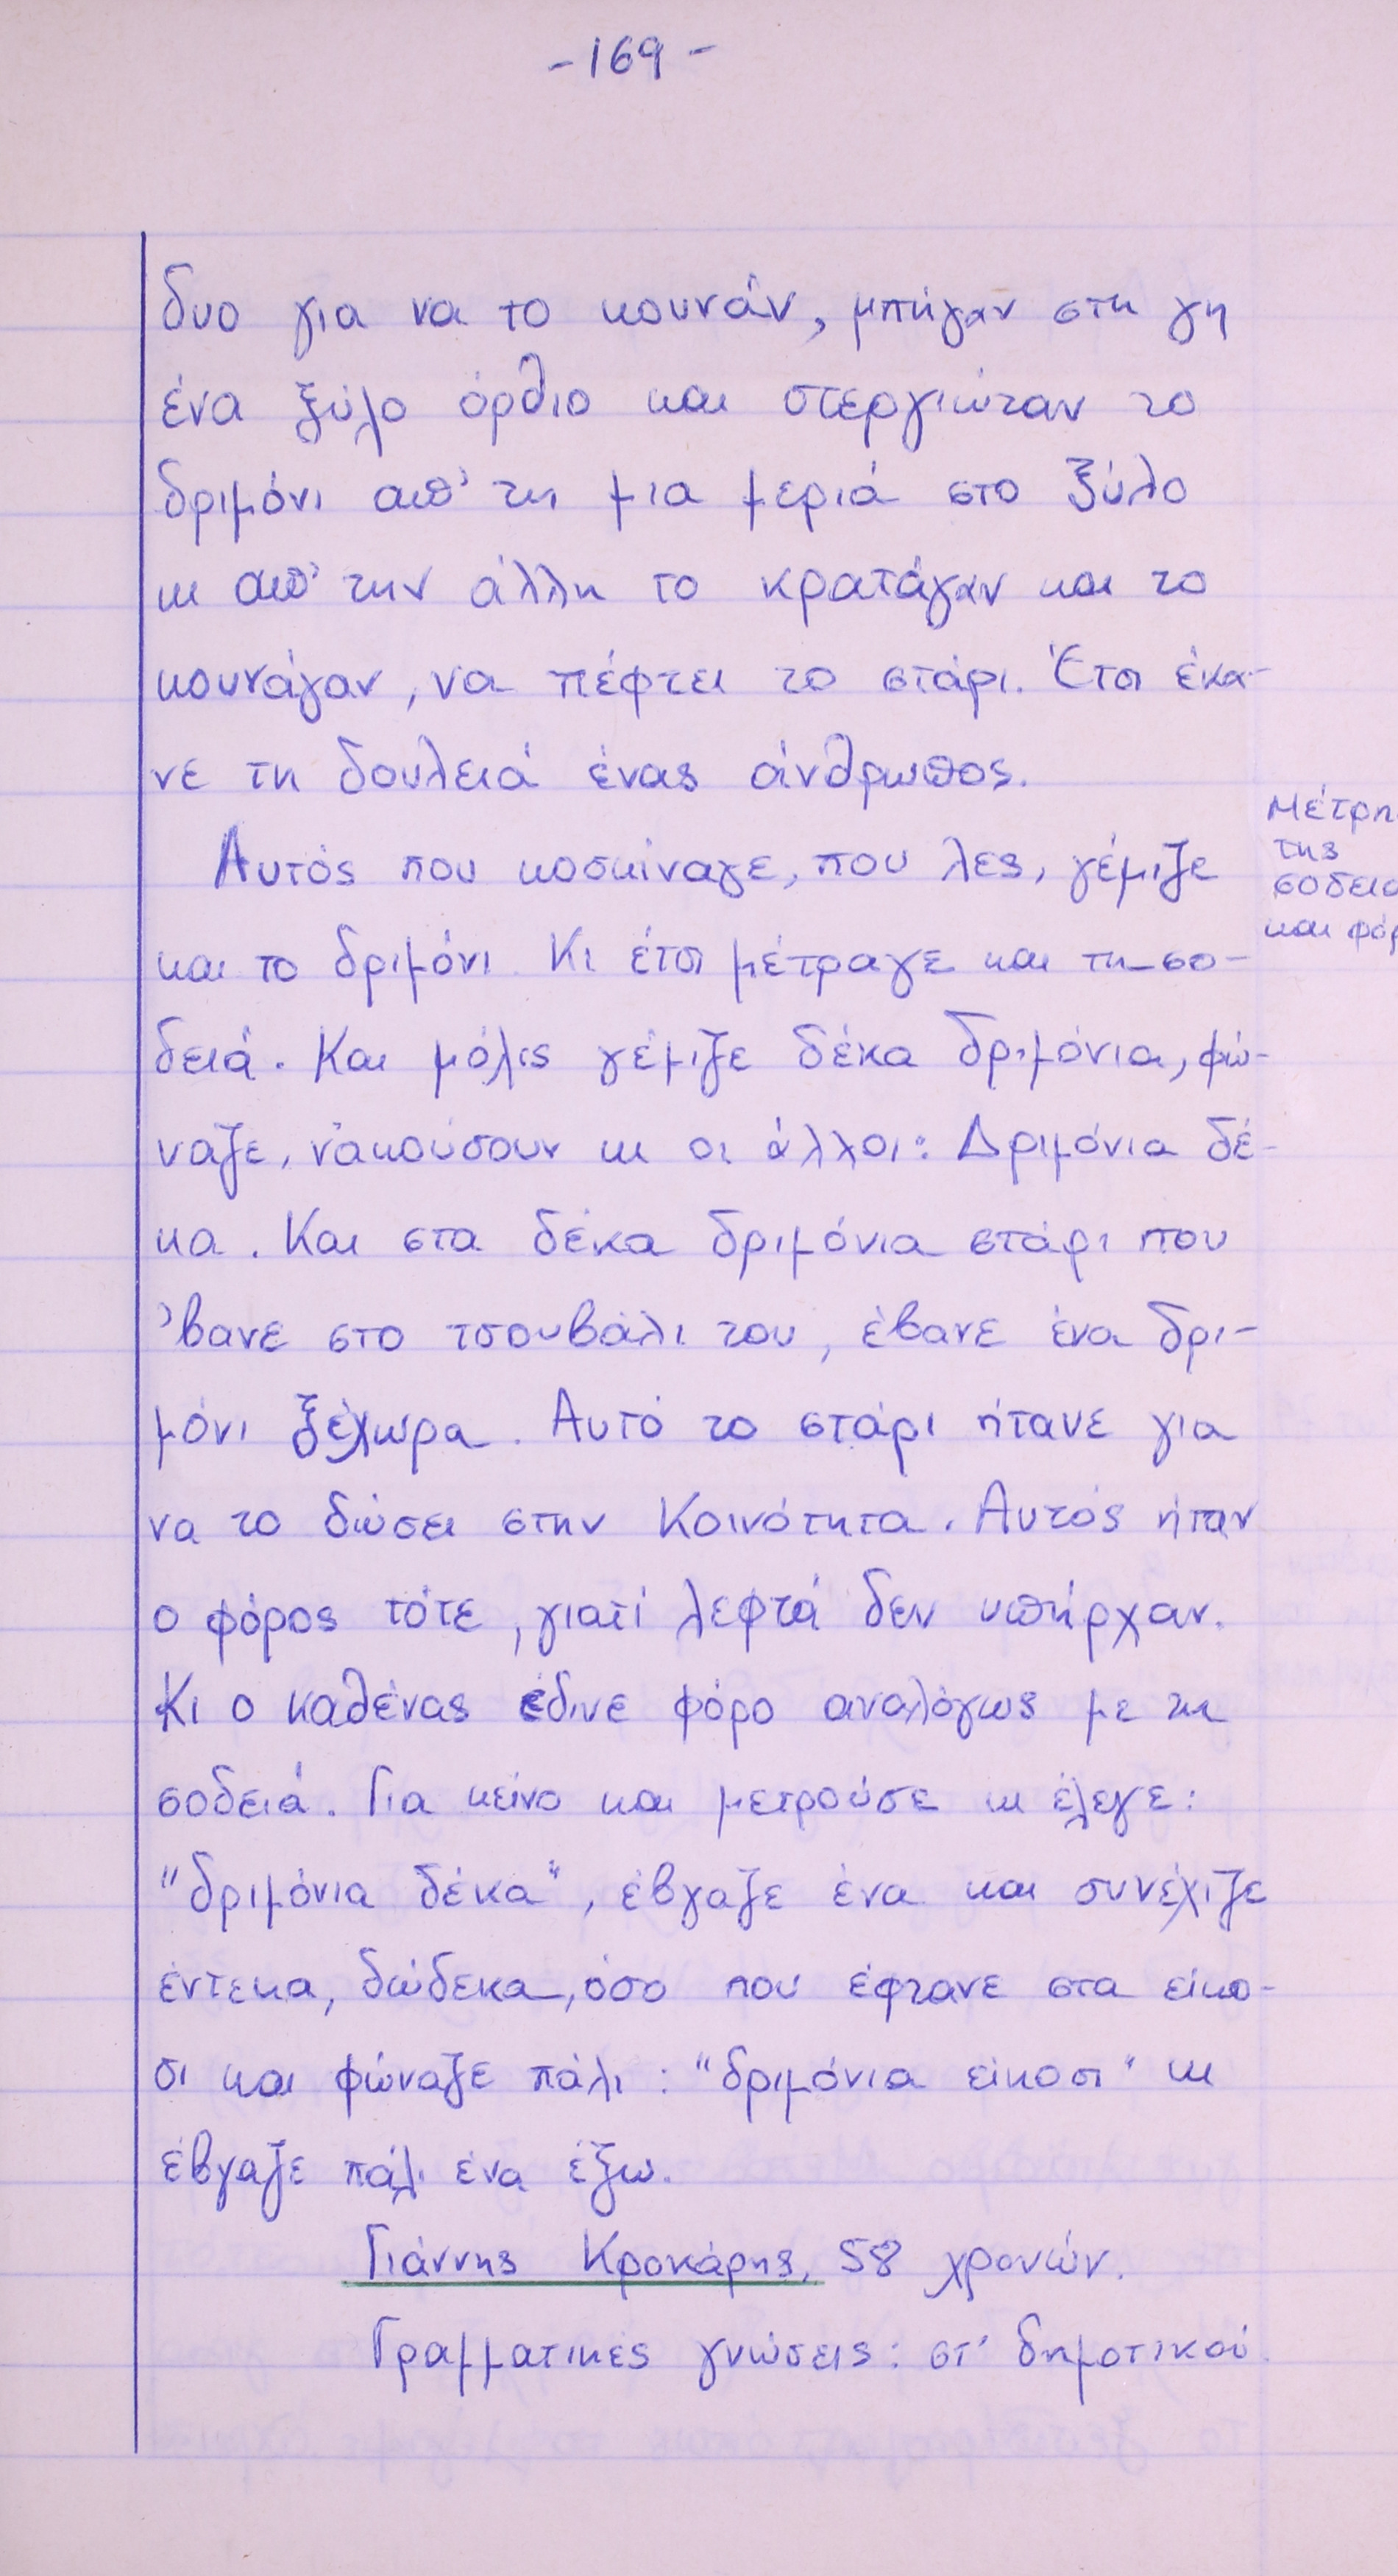 - 169 -
δυο για να το κουνάν, μπήγαν στη γη
ένα ξύλο όρθιο και στεργιώταν το
δριμόνι απ' τη μια μεριά στο ξύλο
κι απ' την άλλη το κρατάγαν και το
κουνάγαν, να πέφτει το στάρι. Έτσι έκα-
νε τη δουλειά ένας άνθρωπος.
Αυτός που κοσκίναγε, που λες, γέμιζε
και το δριμόνι. Κι έτσι μέτραγε και τη σο-
δειά. Και μόλις γέμιζε δέκα δριμόνια, φώ-
ναζε, ν'ακούσουν κι οι άλλοι: Δριμόνια δέ-
κα. Και στα δέκα δριμόνια στάρι που
'βανε στο τσουβάλι του, έβανε ένα δρι-
μόνι ξέχωρα. Αυτό το στάρι ήτανε για
να το δώσει στην Κοινότητα. Αυτός ήταν
ο φόρος τότε, γιατί λεφτά δεν υπήρχαν.
Κι ο καθένας έδινε φόρο αναλόγως με τη
σοδειά. Για κείνο και μετρούσε κι έλεγε:
"δριμόνια δέκα", έβγαζε ένα και συνέχιζε
έντεκα, δώδεκα, όσο που έφτανε στα είκο-
σι και φώναζε πάλι: "δριμόνια είκοσι" κι
έβγαζε πάλι ένα έξω.
Γιάννης Κροκάρης, 58 χρονών.
Γραμματικές γνώσεις: στ' δημοτικού.
Μέτρη
της
σοδεια
και φόρ